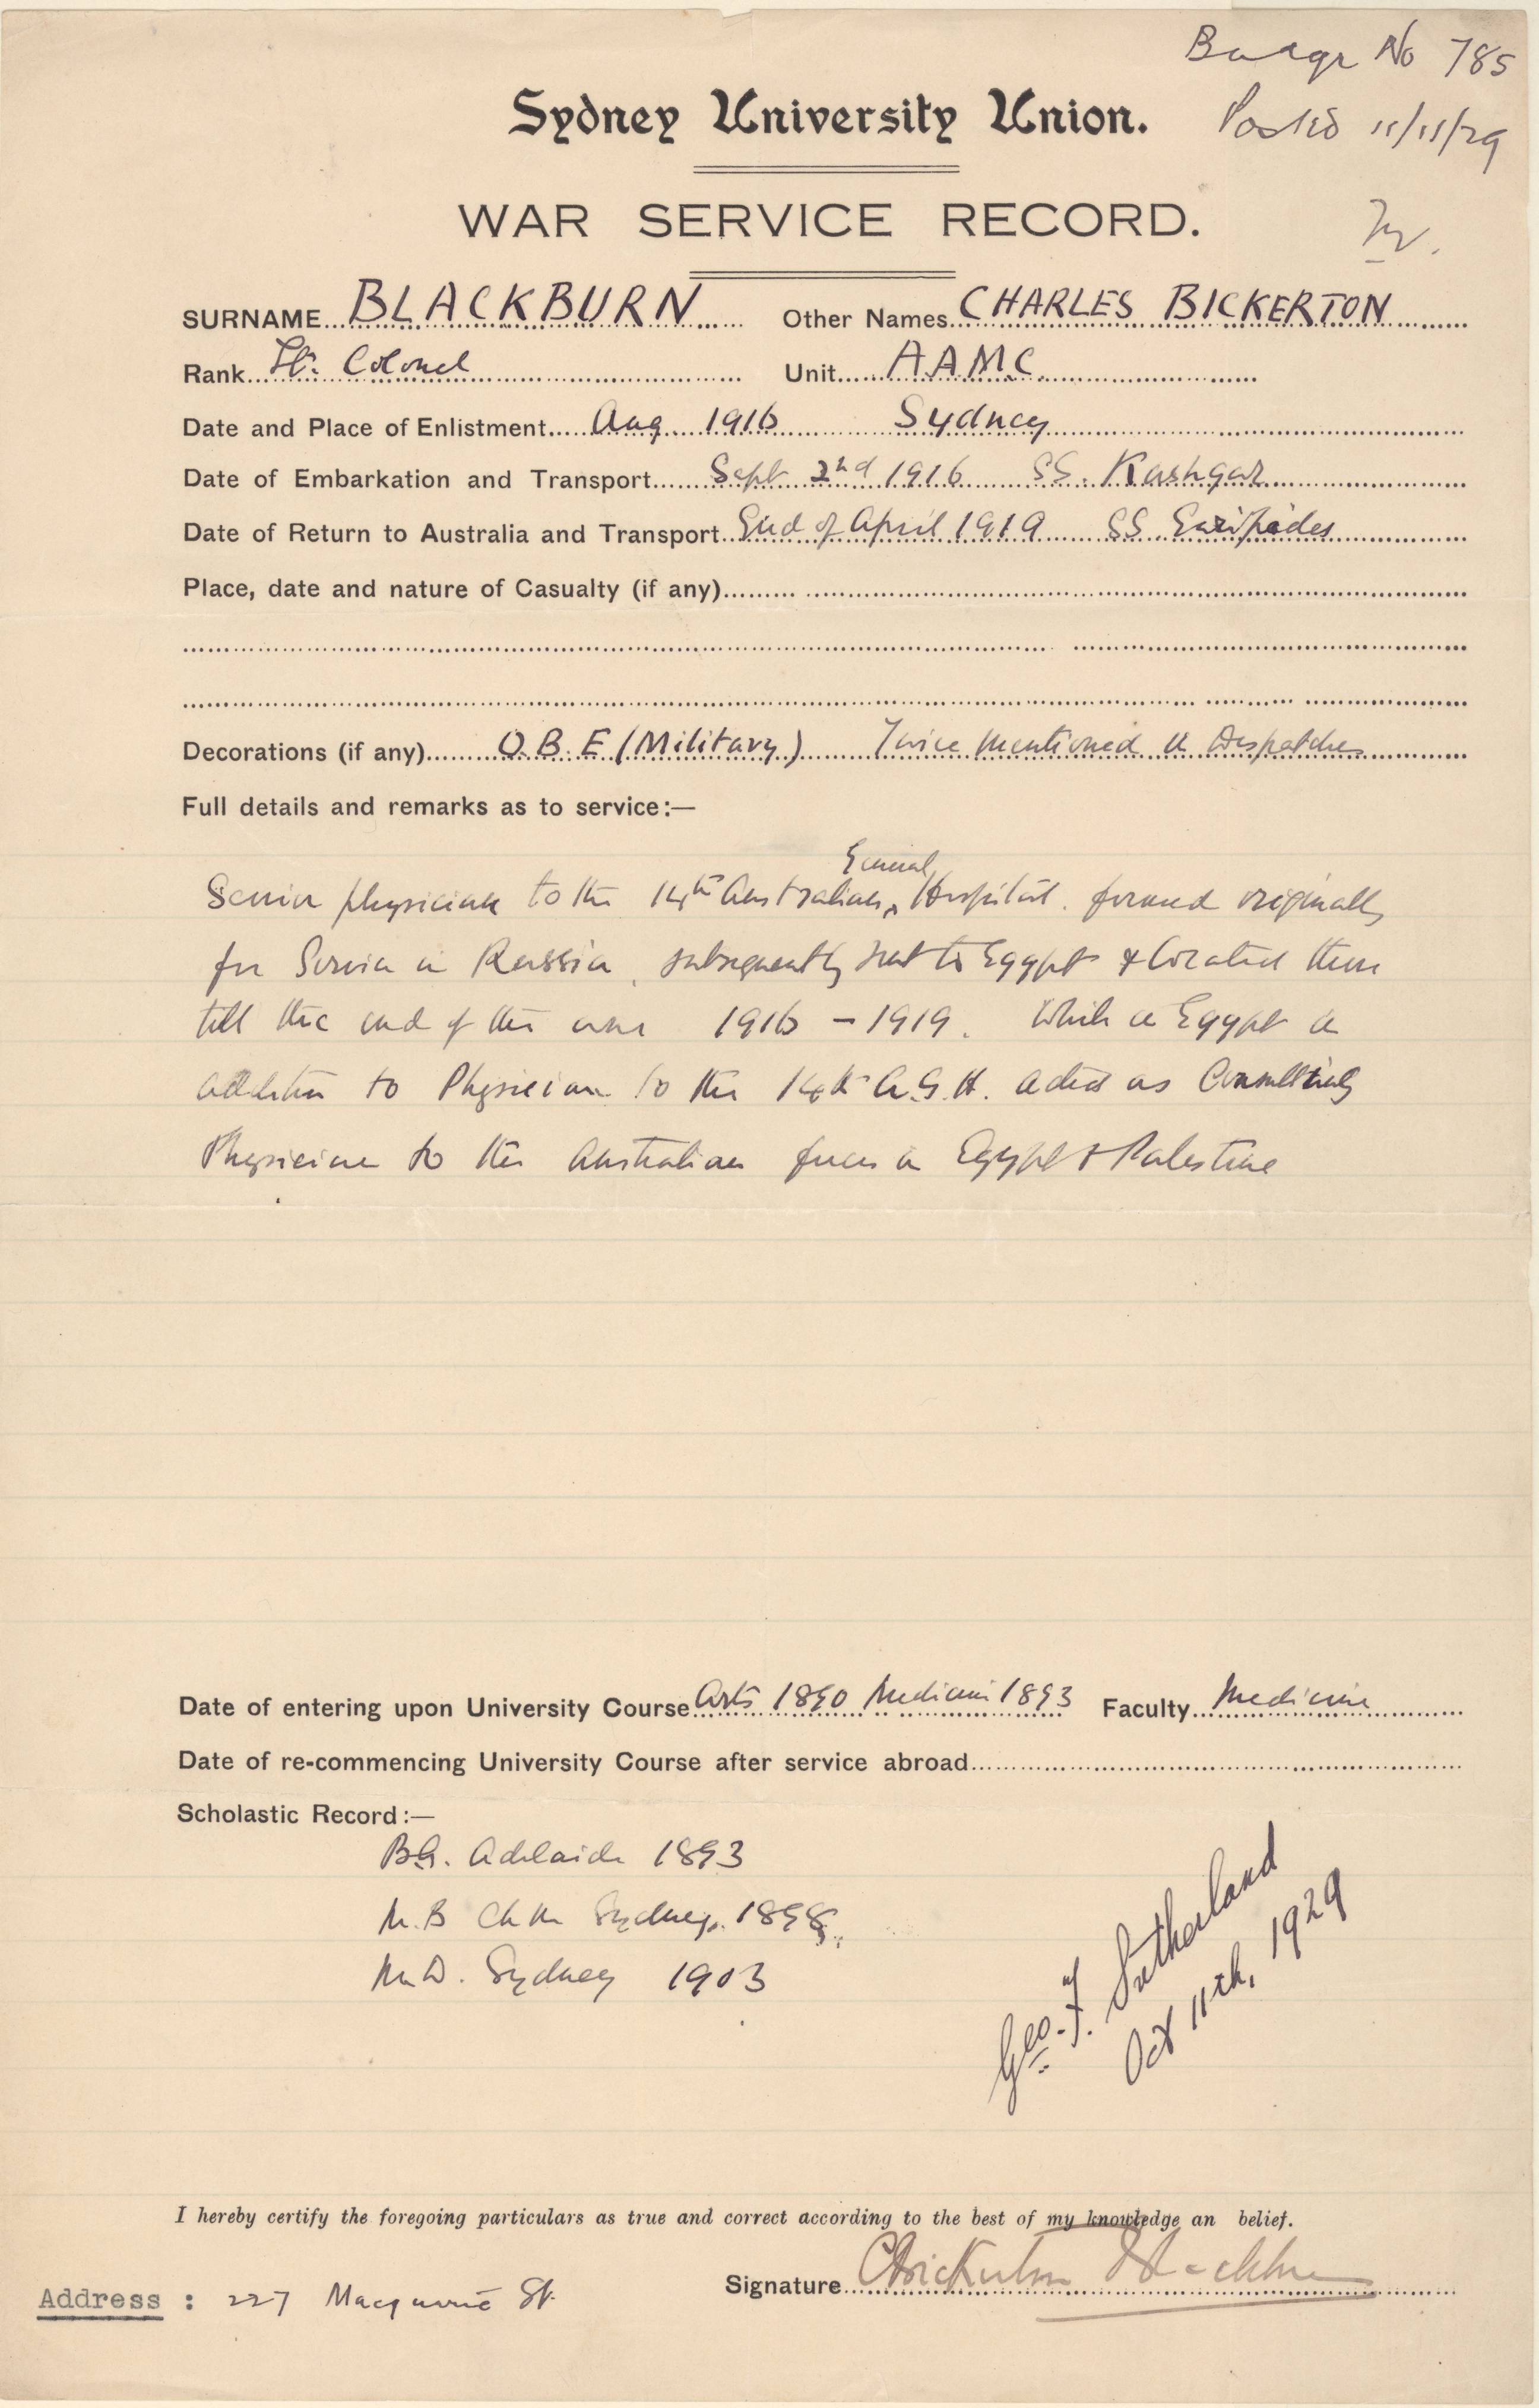 Badge No 785
Sydney University Union.
Posted 11/11/29
WAR SERVICE RECORD.
SURNAME BLACKBURN Other Names CHARLES BICKERTON
Rank Lt. Colonel Unit AAMC
Date and Place of Enlistment Aug 1916 Sydney
Date of Embarkation and Transport Sept 2nd 1916 SS. Kashgar
Date of Return to Australia and Transport End of April 1919 SS Euripides
Place, date and nature of Casualty (if any)
Decorations (if any) O.B.E (Military) Twice mentioned in Despatches
Full details and remarks as to service:—
General
Senior physician to the 14th Australian Hospital. formed originally
for Service in Russia, subsequently sent to Egypt & located there
till the end of the war 1916 - 1919. While in Egypt in
addition to Physician to the 14th A.G.H. acted as Consulting
Physician to the Australian forces in Egypt & Palestine
Date of entering upon University Course Arts 1890 Medicine 1893 Faculty Medicine
Date of re-commencing University Course after service abroad
Scholastic Record:—
BA. Adelaide 1893
M.B Ch M Sydney. 1898
M.D. Sydney 1903
Geo. F. Sutherland
Oct 11th, 1929
I hereby certify the foregoing particulars as true and correct according to the best of my knowledge an belief.
Signature CBickerton Blackburn
Address : 227 Macquarie St.